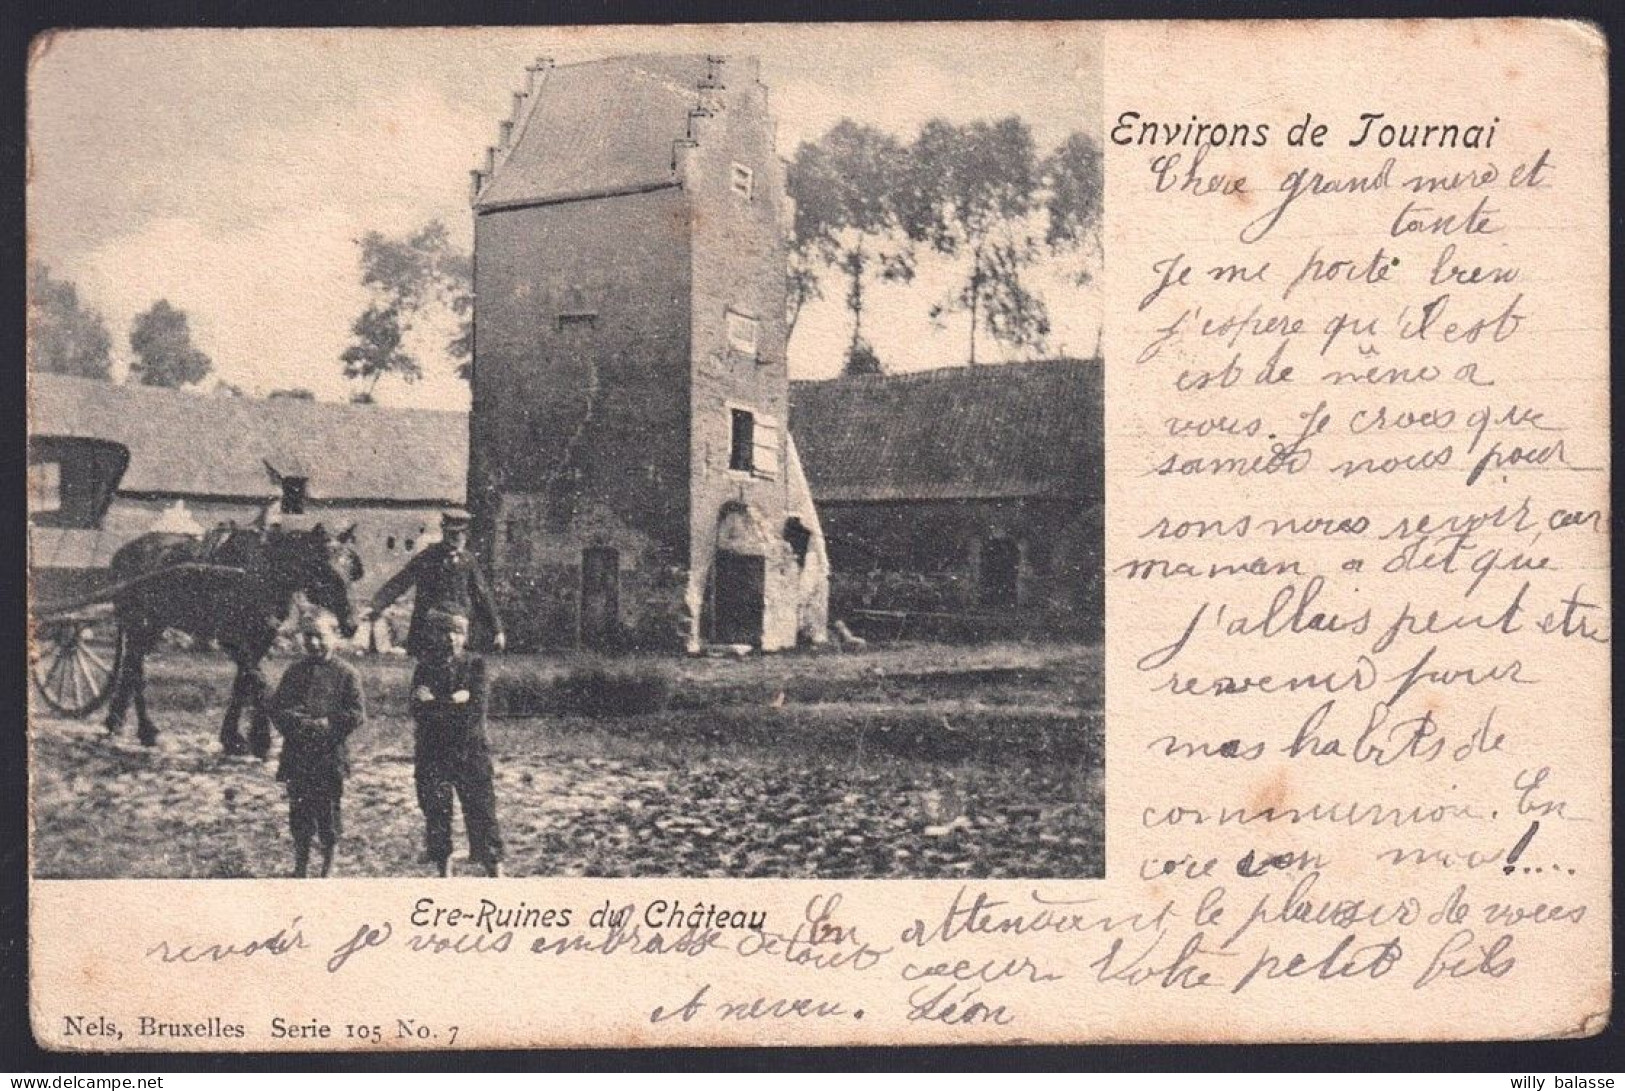 Environs de Tournai
Chere grand mere et
tante
Je me porte bien
j'espere qu'il est
est de mêne a
vous. Je crois que
samedi nous pour
rons nous revoir, car
maman a dit que
j'allais peut etre
revenir pour
mes habits de
communion. En
core un mois!....
Ere-Ruines du Château
En attendant le plaisir de vous
revoir je vous embrasse de tout coeur. Votre petit fils
et neveu. Léon
Nels, Bruxelles Serie 105 No. 7
willy balasse